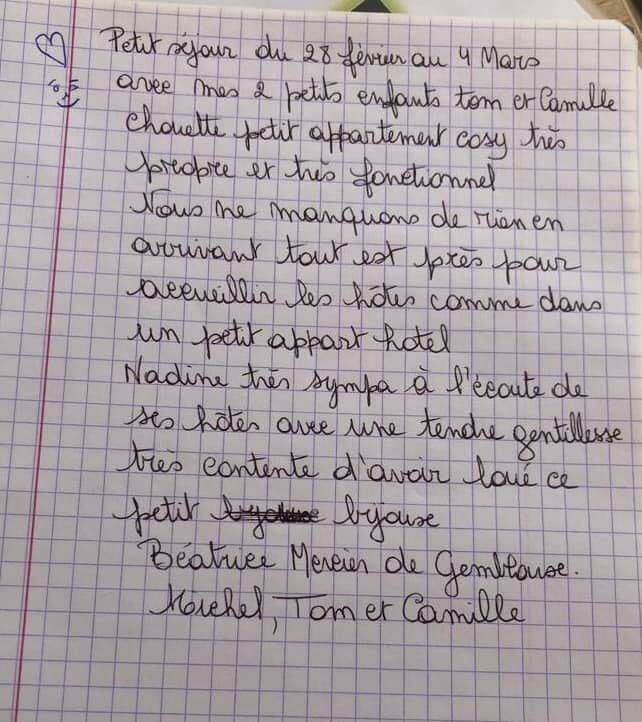 Petit séjour du 28 février au 4 Mars
avec mes 2 petits enfants tom et Camille
Chouette petit appartement cosy très
propre et très fonctionnel
Nous ne manquons de rien en
arrivant tout est près pour
accueillir les hôtes comme dans
un petit appart hotel
Nadine très sympa à l'écoute de
ses hôtes avec une tendre gentillesse
très contente d'avoir loué ce
petit byouxe
Béatrice Mercier de Gembloux.
Michel, Tom et Camille